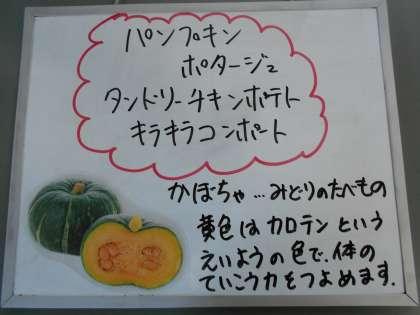 パンプキン
ポタージュ
タンドリーチキンポテト
キラキラコンポート
かぼちゃ…みどりのたべもの
黄色はカロテンという
えいようの色で、体の
ていこう力をつよめます。